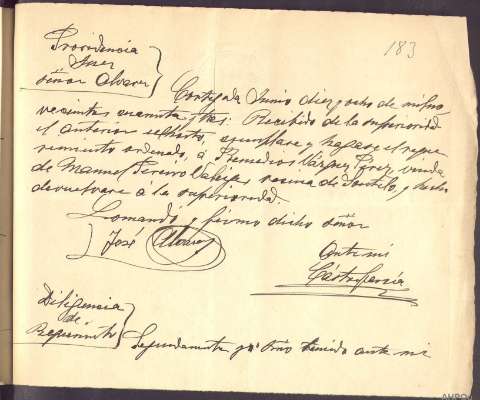 183
Providencia
Juez
señor Alvarez
Cortegada Junio diez y ocho de mil no
vecientos cuarenta y tres. Recibido de la superioridad
el anterior exhorto, cumplase y hagase el reque
rimiento ordenado, a Remedios Vázquez Pérez viuda
de Manuel Pereiro vecina de y hecho
devuelvase á la superioridad.
Lo mandó y firma dicho señor
José Alvarez
Ante mi
Castro García
Diligencia
de
Requerimto
Seguidamente yo teniendo ante mi
AHPO